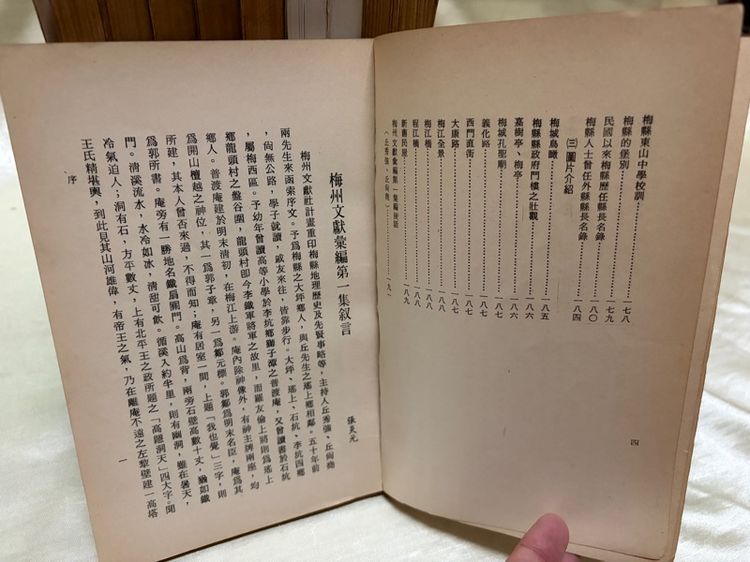 梅縣東山中學校訓……………一七八
梅縣的堡別……………一七九
民國以來梅縣歷任縣長名錄……………一八〇
梅縣人士曾任外縣縣長名錄……………一八四
㈢圖片介紹
梅城鳥瞰……………一八五
梅縣縣政府門樓之壯觀……………
嘉樹亭、梅亭……………一八六
梅城孔聖廟……………一八六
義化路……………一八六
西門直街……………一八七
大康路……………一八七
梅江全景……………一八八
梅江橋……………一八八
程江橋……………一八八
新舊民房……………一八九
梅州文獻彙編第一集編後話……………一九一
（丘秀強、丘尚堯）
四
梅州文獻彙編第一集叙言
張炎元
梅州文獻社計畫重印梅縣地理歷史及先賢事略等，主持人丘秀強、丘尚堯
兩先生來函索序文。予為梅縣之大坪鄉人，與丘先生之瑤上鄉相鄰。五十年前
，尚無公路，學子就讀，戚友來往，皆靠步行。大坪、瑤上、石坑、李坑四鄉
，屬梅西區。予幼年曾讀高等小學於李坑鄉獅子潭之普渡庵，又曾讀書於石坑
鄉龍頭村之盤谷圍，龍頭村即今李鐵軍將軍之故里，而羅友倫上將則為瑤上
鄉人。普渡庵建於明末清初，在梅江上游。庵內除神像外，有神主牌兩座，均
為開山檀越之神位，其一為郭子章，另一為鄒元標。郭鄒為明末名臣，庵為其
所建，其本人曾否來過，不得而知；庵有居室一間，上題「我也覺」三字，則
為郭所書。庵旁有一勝地名鐵扇關門。高山為背，兩旁石壁高數十丈，猶如鐵
門。清溪流水，水冷如冰，清甜可飲。循溪入約半里，則有幽洞，雖在暑天，
冷氣迫人；洞有石，方平數丈，上有北平王之政所題之「高隱洞天」四大字。聞
王氏精堪輿，到此見其山河雄偉，有帝王之氣，乃在離庵不遠之左犂壁建一高塔
序
一